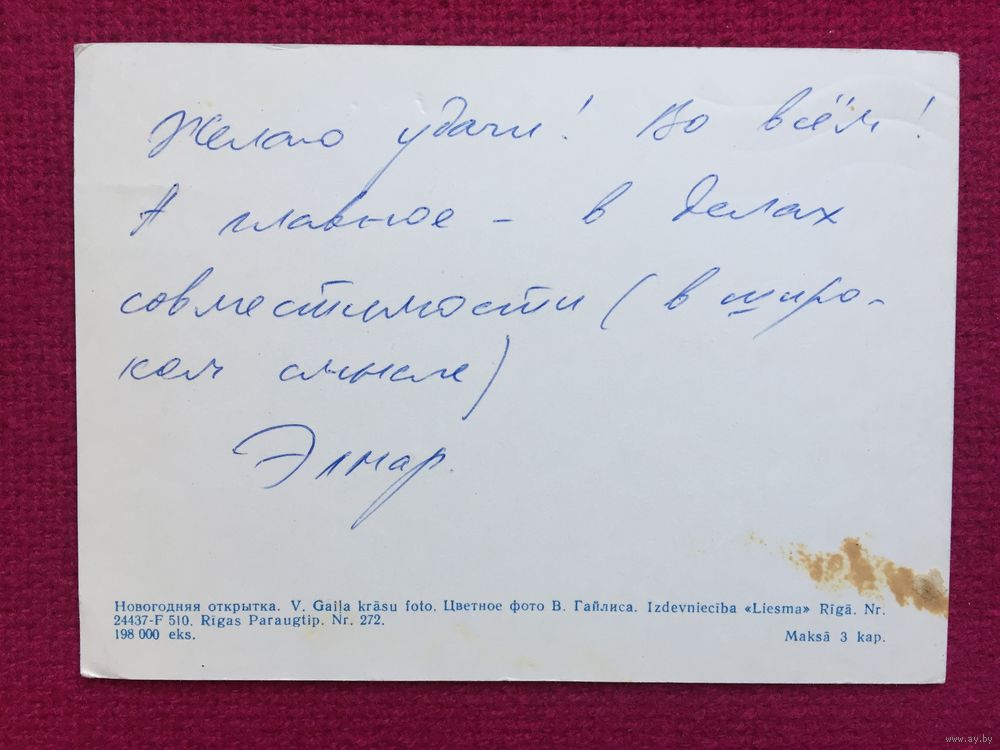 Желаю удачи! Во всём!
А главное – в делах
совместимости (в широ-
ком смысле)
Элмар.
Новогодняя открытка. V. Gaiļa krāsu foto. Цветное фото В. Гайлиса. Izdevniecība «Liesma» Rīgā. Nr.
24437-F 510. Rīgas Paraugtip. Nr. 272.
198 000 eks.
Maksā 3 kap.
www.ay.by